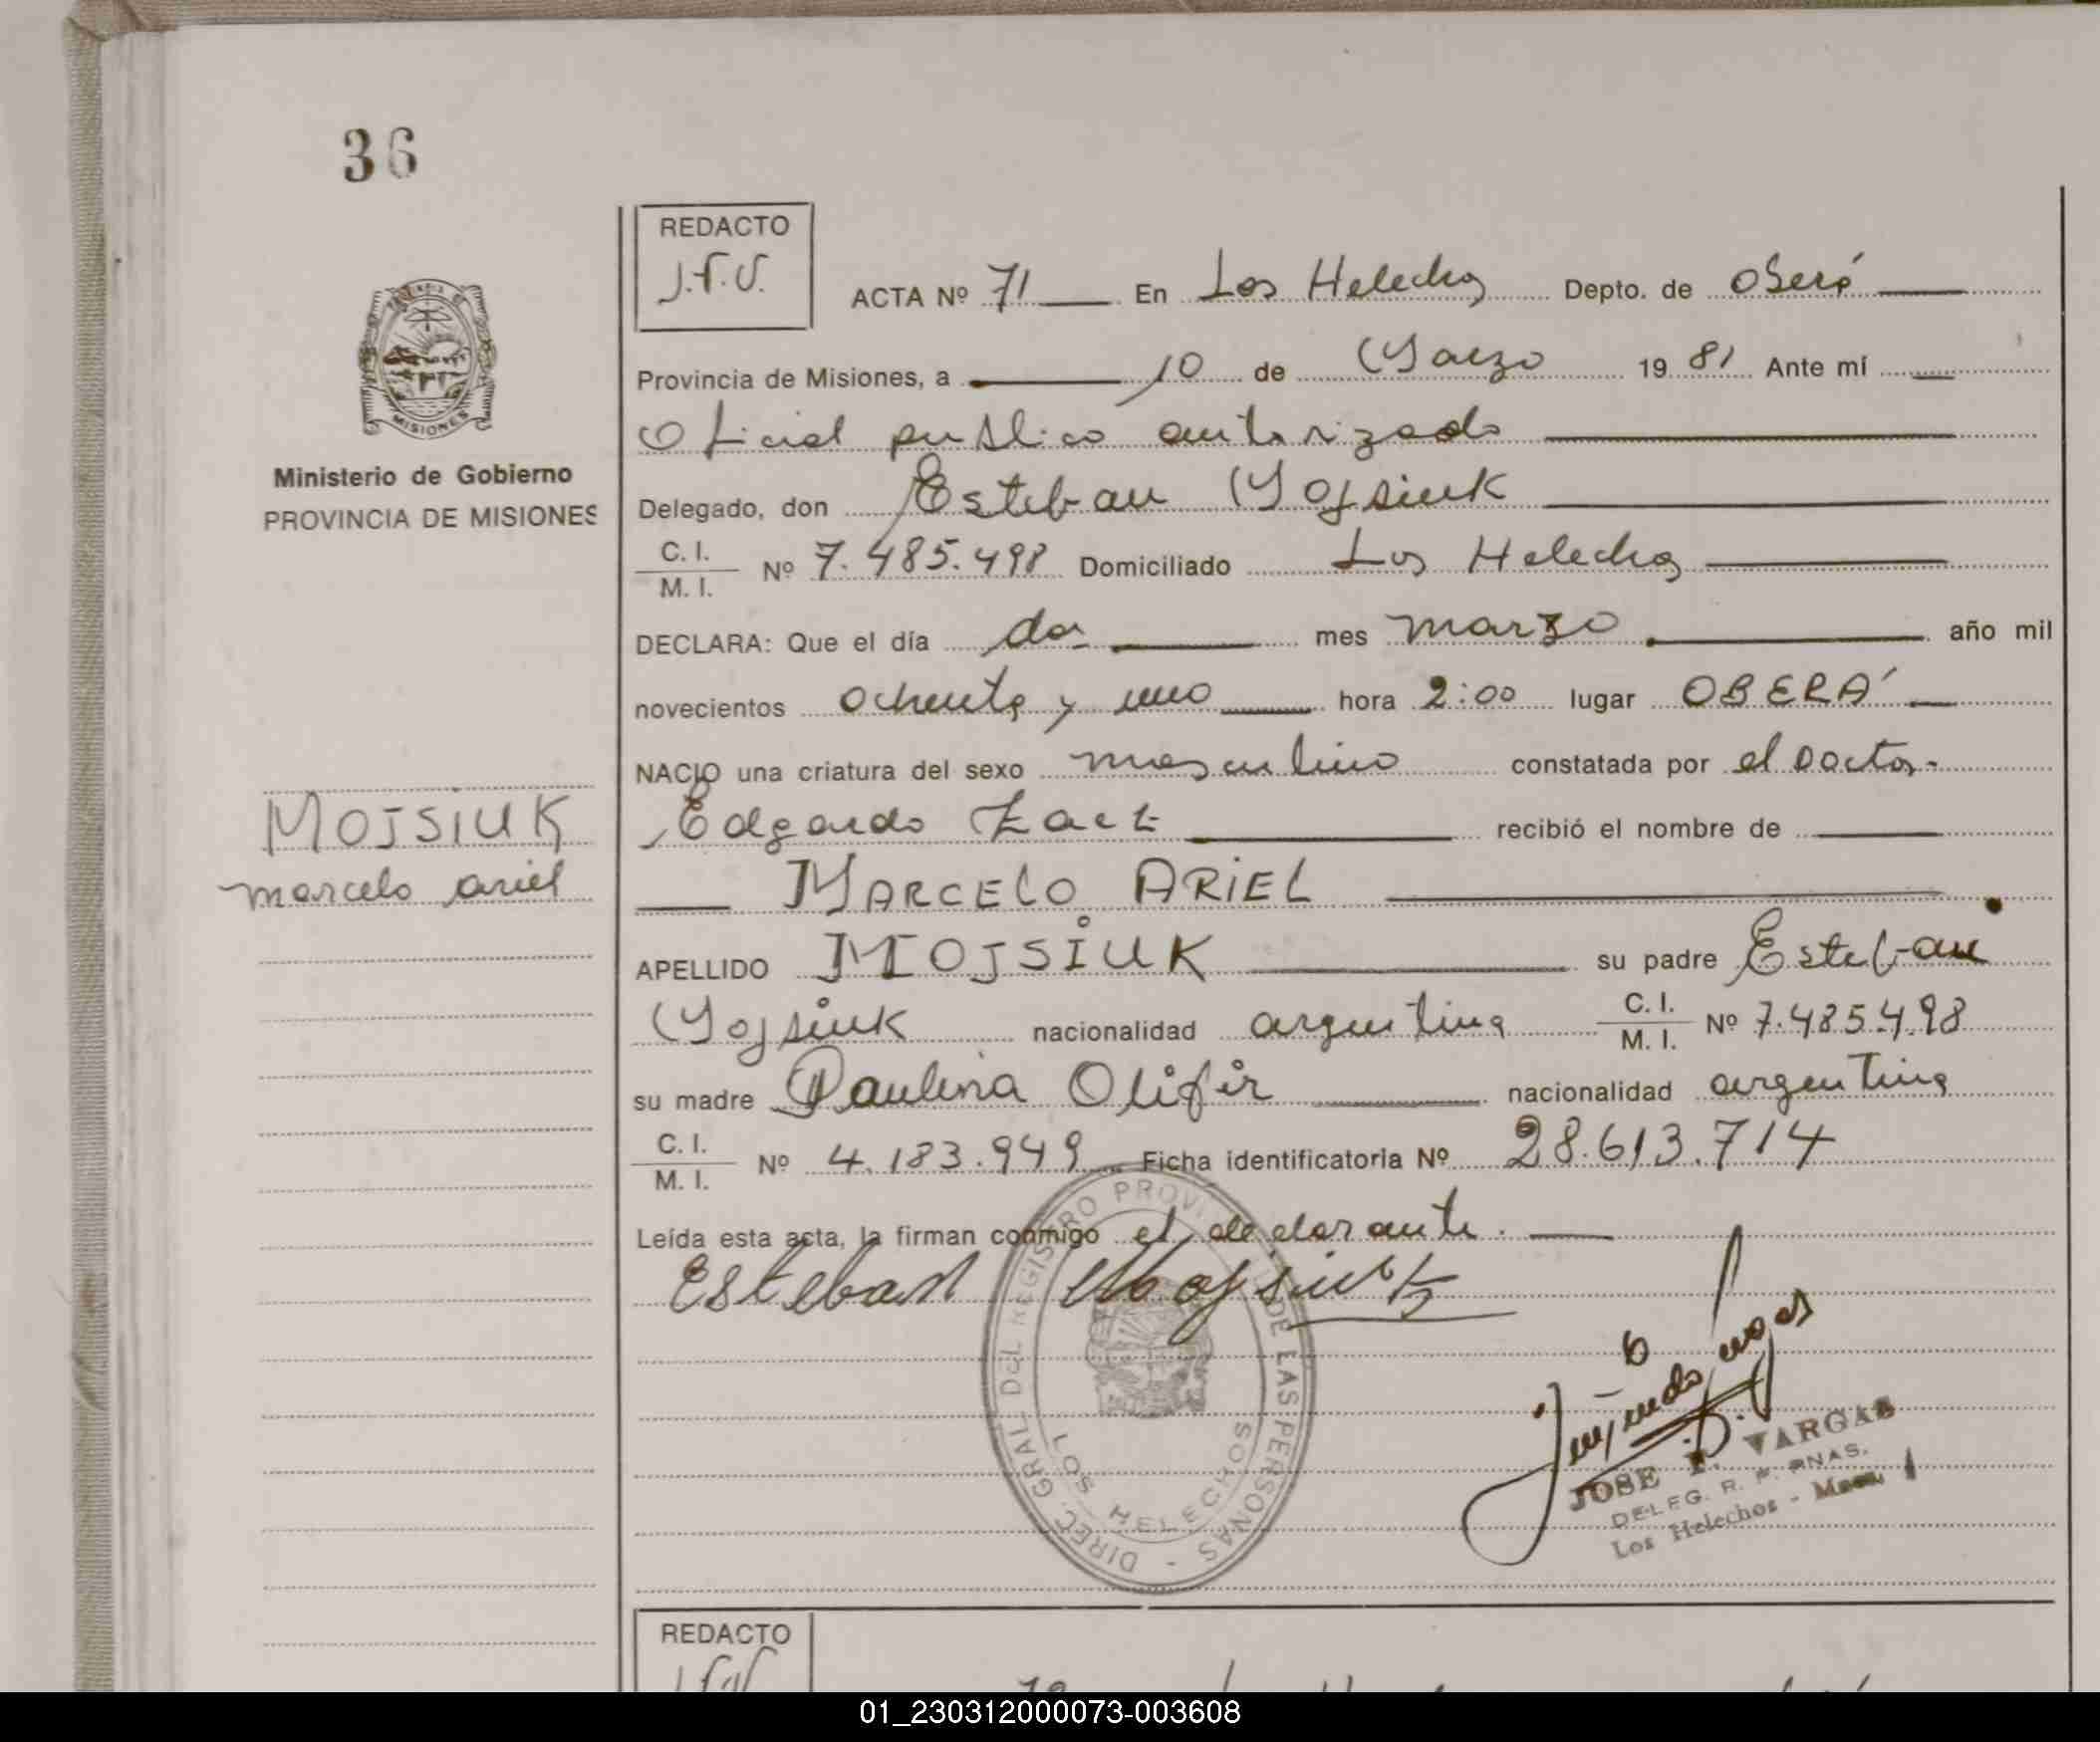 36
REDACTO
J.F.V.
ACTA Nº 71 En Los Helechos Depto. de Oberá
Provincia de Misiones, a 10 de Marzo 1981 Ante mí
Oficial publico autorizado
MISIONES
Ministerio de Gobierno
PROVINCIA DE MISIONES
Delegado, don Esteban Mojsiuk
C. I.
M. I.
Nº 7.485.498 Domiciliado Los Helechos
DECLARA: Que el día dos mes marzo año mil
novecientos ochenta y uno hora 2:00 lugar OBERA´
NACIO una criatura del sexo masculino constatada por el Doctor
Edgardo recibió el nombre de
MOJSIUK
marcelo ariel
MARCELO ARIEL
APELLIDO MOJSIUK su padre Esteban
Mojsiuk nacionalidad argentina C. I.
M. I.
Nº 7.485.498
su madre Paulina Olifir nacionalidad argentina
C. I.
M. I.
Nº 4.183.949 Ficha identificatoria Nº 28.613.714
Leída esta acta, la firman conmigo el declarante.
Esteban Mojsiuk
DIREC. GRAL. DEL REGISTRO PROV. DE LAS PERSONAS -
LOS HELECHOS
JOSE F. VARGAS
DELEG. R. P. PNAS.
Los Helechos -
REDACTO
01_230312000073-003608